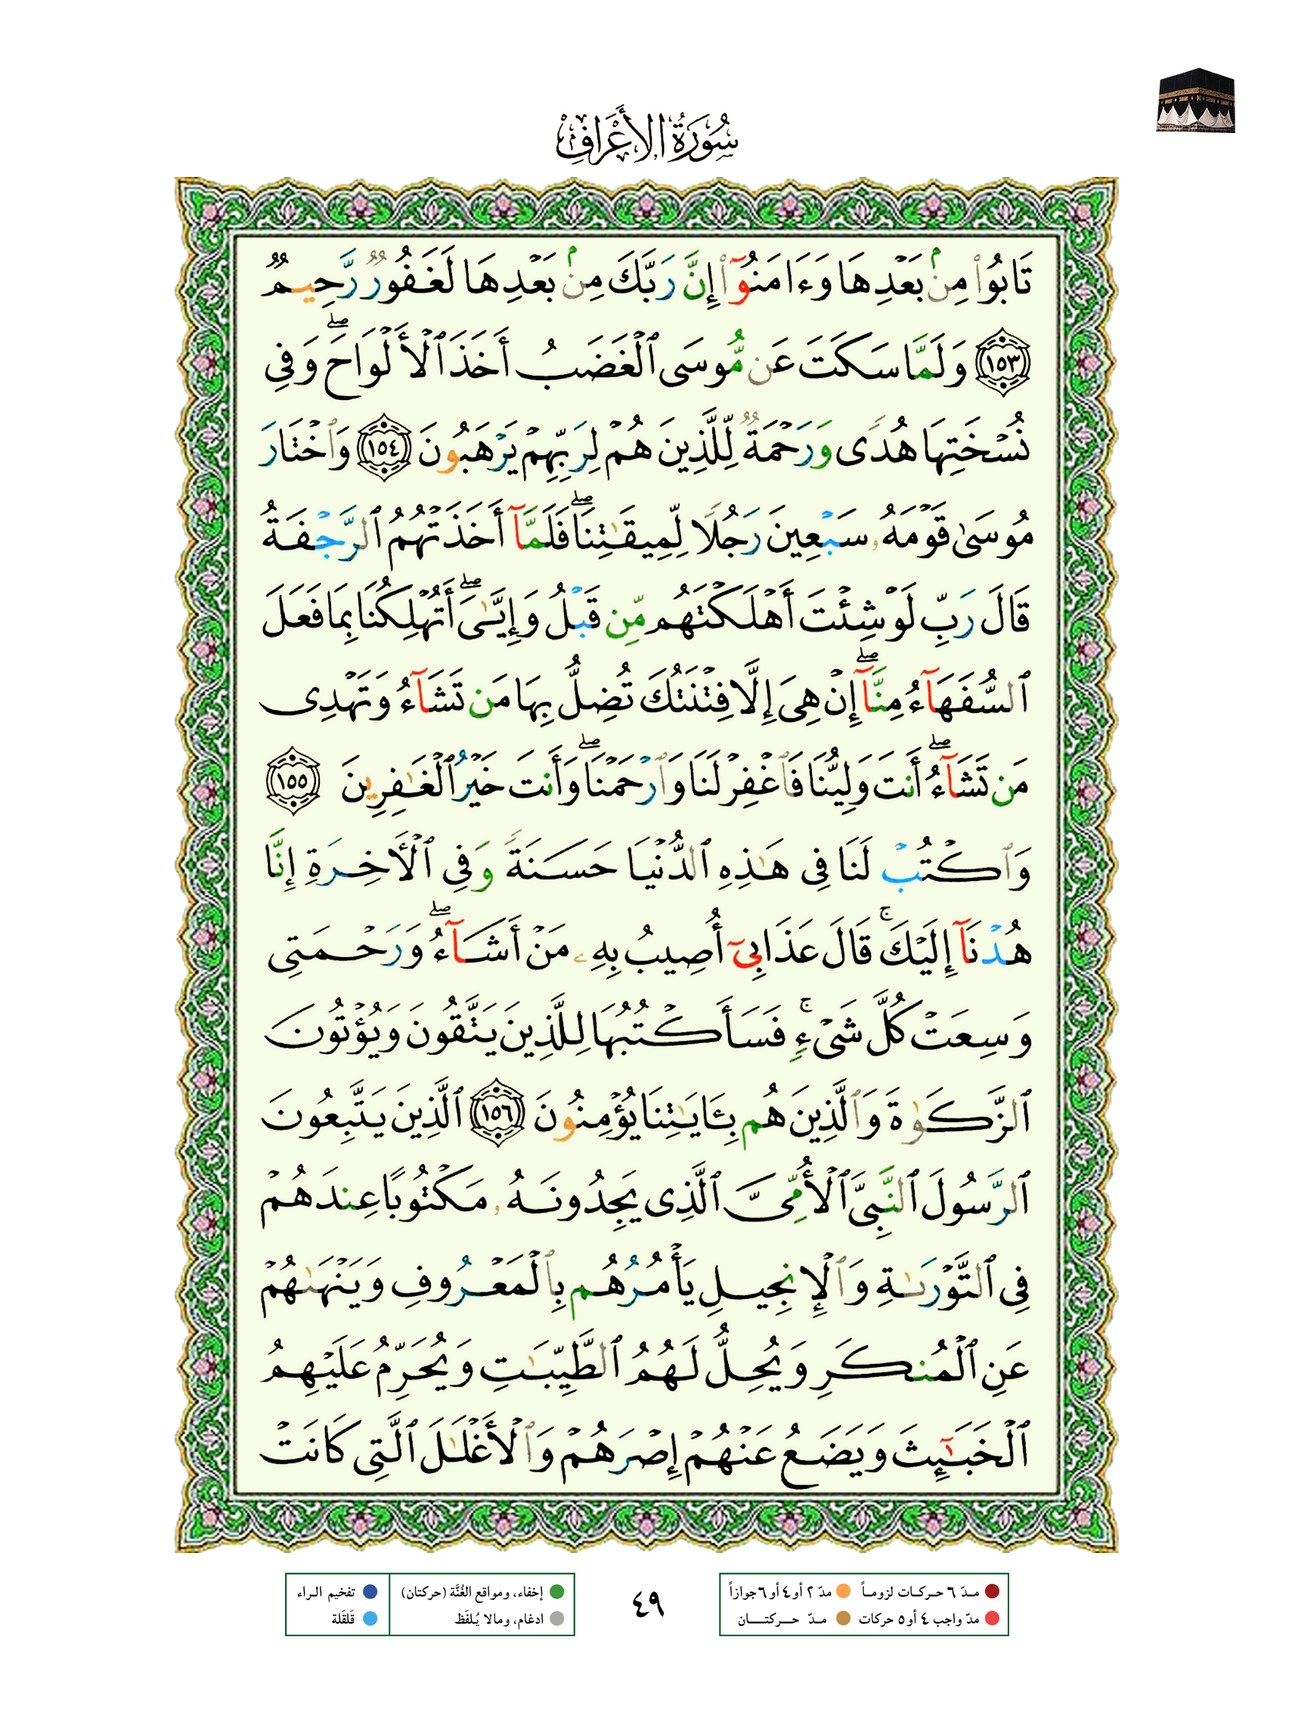 سُورَةُ الأَعْرَافِ
تَابُوا۟ مِنۢ بَعْدِهَا وَءَامَنُوٓا۟ إِنَّ رَبَّكَ مِنۢ بَعْدِهَا لَغَفُورٌ رَّحِيمٌ
﴿١٥٣﴾ وَلَمَّا سَكَتَ عَن مُّوسَى ٱلْغَضَبُ أَخَذَ ٱلْأَلْوَاحَ ۖ وَفِى
نُسْخَتِهَا هُدًى وَرَحْمَةٌ لِّلَّذِينَ هُمْ لِرَبِّهِمْ يَرْهَبُونَ ﴿١٥٤﴾ وَٱخْتَارَ
مُوسَىٰ قَوْمَهُۥ سَبْعِينَ رَجُلًا لِّمِيقَـٰتِنَا ۖ فَلَمَّآ أَخَذَتْهُمُ ٱلرَّجْفَةُ
قَالَ رَبِّ لَوْ شِئْتَ أَهْلَكْتَهُم مِّن قَبْلُ وَإِيَّـٰىَ ۖ أَتُهْلِكُنَا بِمَا فَعَلَ
ٱلسُّفَهَآءُ مِنَّآ ۖ إِنْ هِىَ إِلَّا فِتْنَتُكَ تُضِلُّ بِهَا مَن تَشَآءُ وَتَهْدِى
مَن تَشَآءُ ۖ أَنتَ وَلِيُّنَا فَٱغْفِرْ لَنَا وَٱرْحَمْنَا ۖ وَأَنتَ خَيْرُ ٱلْغَـٰفِرِينَ ﴿١٥٥﴾
وَٱكْتُبْ لَنَا فِى هَـٰذِهِ ٱلدُّنْيَا حَسَنَةً وَفِى ٱلْـَٔاخِرَةِ إِنَّا
هُدْنَآ إِلَيْكَ ۚ قَالَ عَذَابِىٓ أُصِيبُ بِهِۦ مَنْ أَشَآءُ ۖ وَرَحْمَتِى
وَسِعَتْ كُلَّ شَىْءٍ ۚ فَسَأَكْتُبُهَا لِلَّذِينَ يَتَّقُونَ وَيُؤْتُونَ
ٱلزَّكَوٰةَ وَٱلَّذِينَ هُم بِـَٔايَـٰتِنَا يُؤْمِنُونَ ﴿١٥٦﴾ ٱلَّذِينَ يَتَّبِعُونَ
ٱلرَّسُولَ ٱلنَّبِىَّ ٱلْأُمِّىَّ ٱلَّذِى يَجِدُونَهُۥ مَكْتُوبًا عِندَهُمْ
فِى ٱلتَّوْرَىٰةِ وَٱلْإِنجِيلِ يَأْمُرُهُم بِٱلْمَعْرُوفِ وَيَنْهَىٰهُمْ
عَنِ ٱلْمُنكَرِ وَيُحِلُّ لَهُمُ ٱلطَّيِّبَـٰتِ وَيُحَرِّمُ عَلَيْهِمُ
ٱلْخَبَـٰٓئِثَ وَيَضَعُ عَنْهُمْ إِصْرَهُمْ وَٱلْأَغْلَـٰلَ ٱلَّتِى كَانَتْ
مدّ ٦ حركات لزوماً مدّ ٢ أو ٤ أو ٦ جوازاً
مدّ واجب ٤ أو ٥ حركات مدّ حركتان
٤٩
إخفاء، ومواقع الغُنَّة (حركتان) تفخيم الراء
ادغام، ومالا يُلفَظ قلقَلة